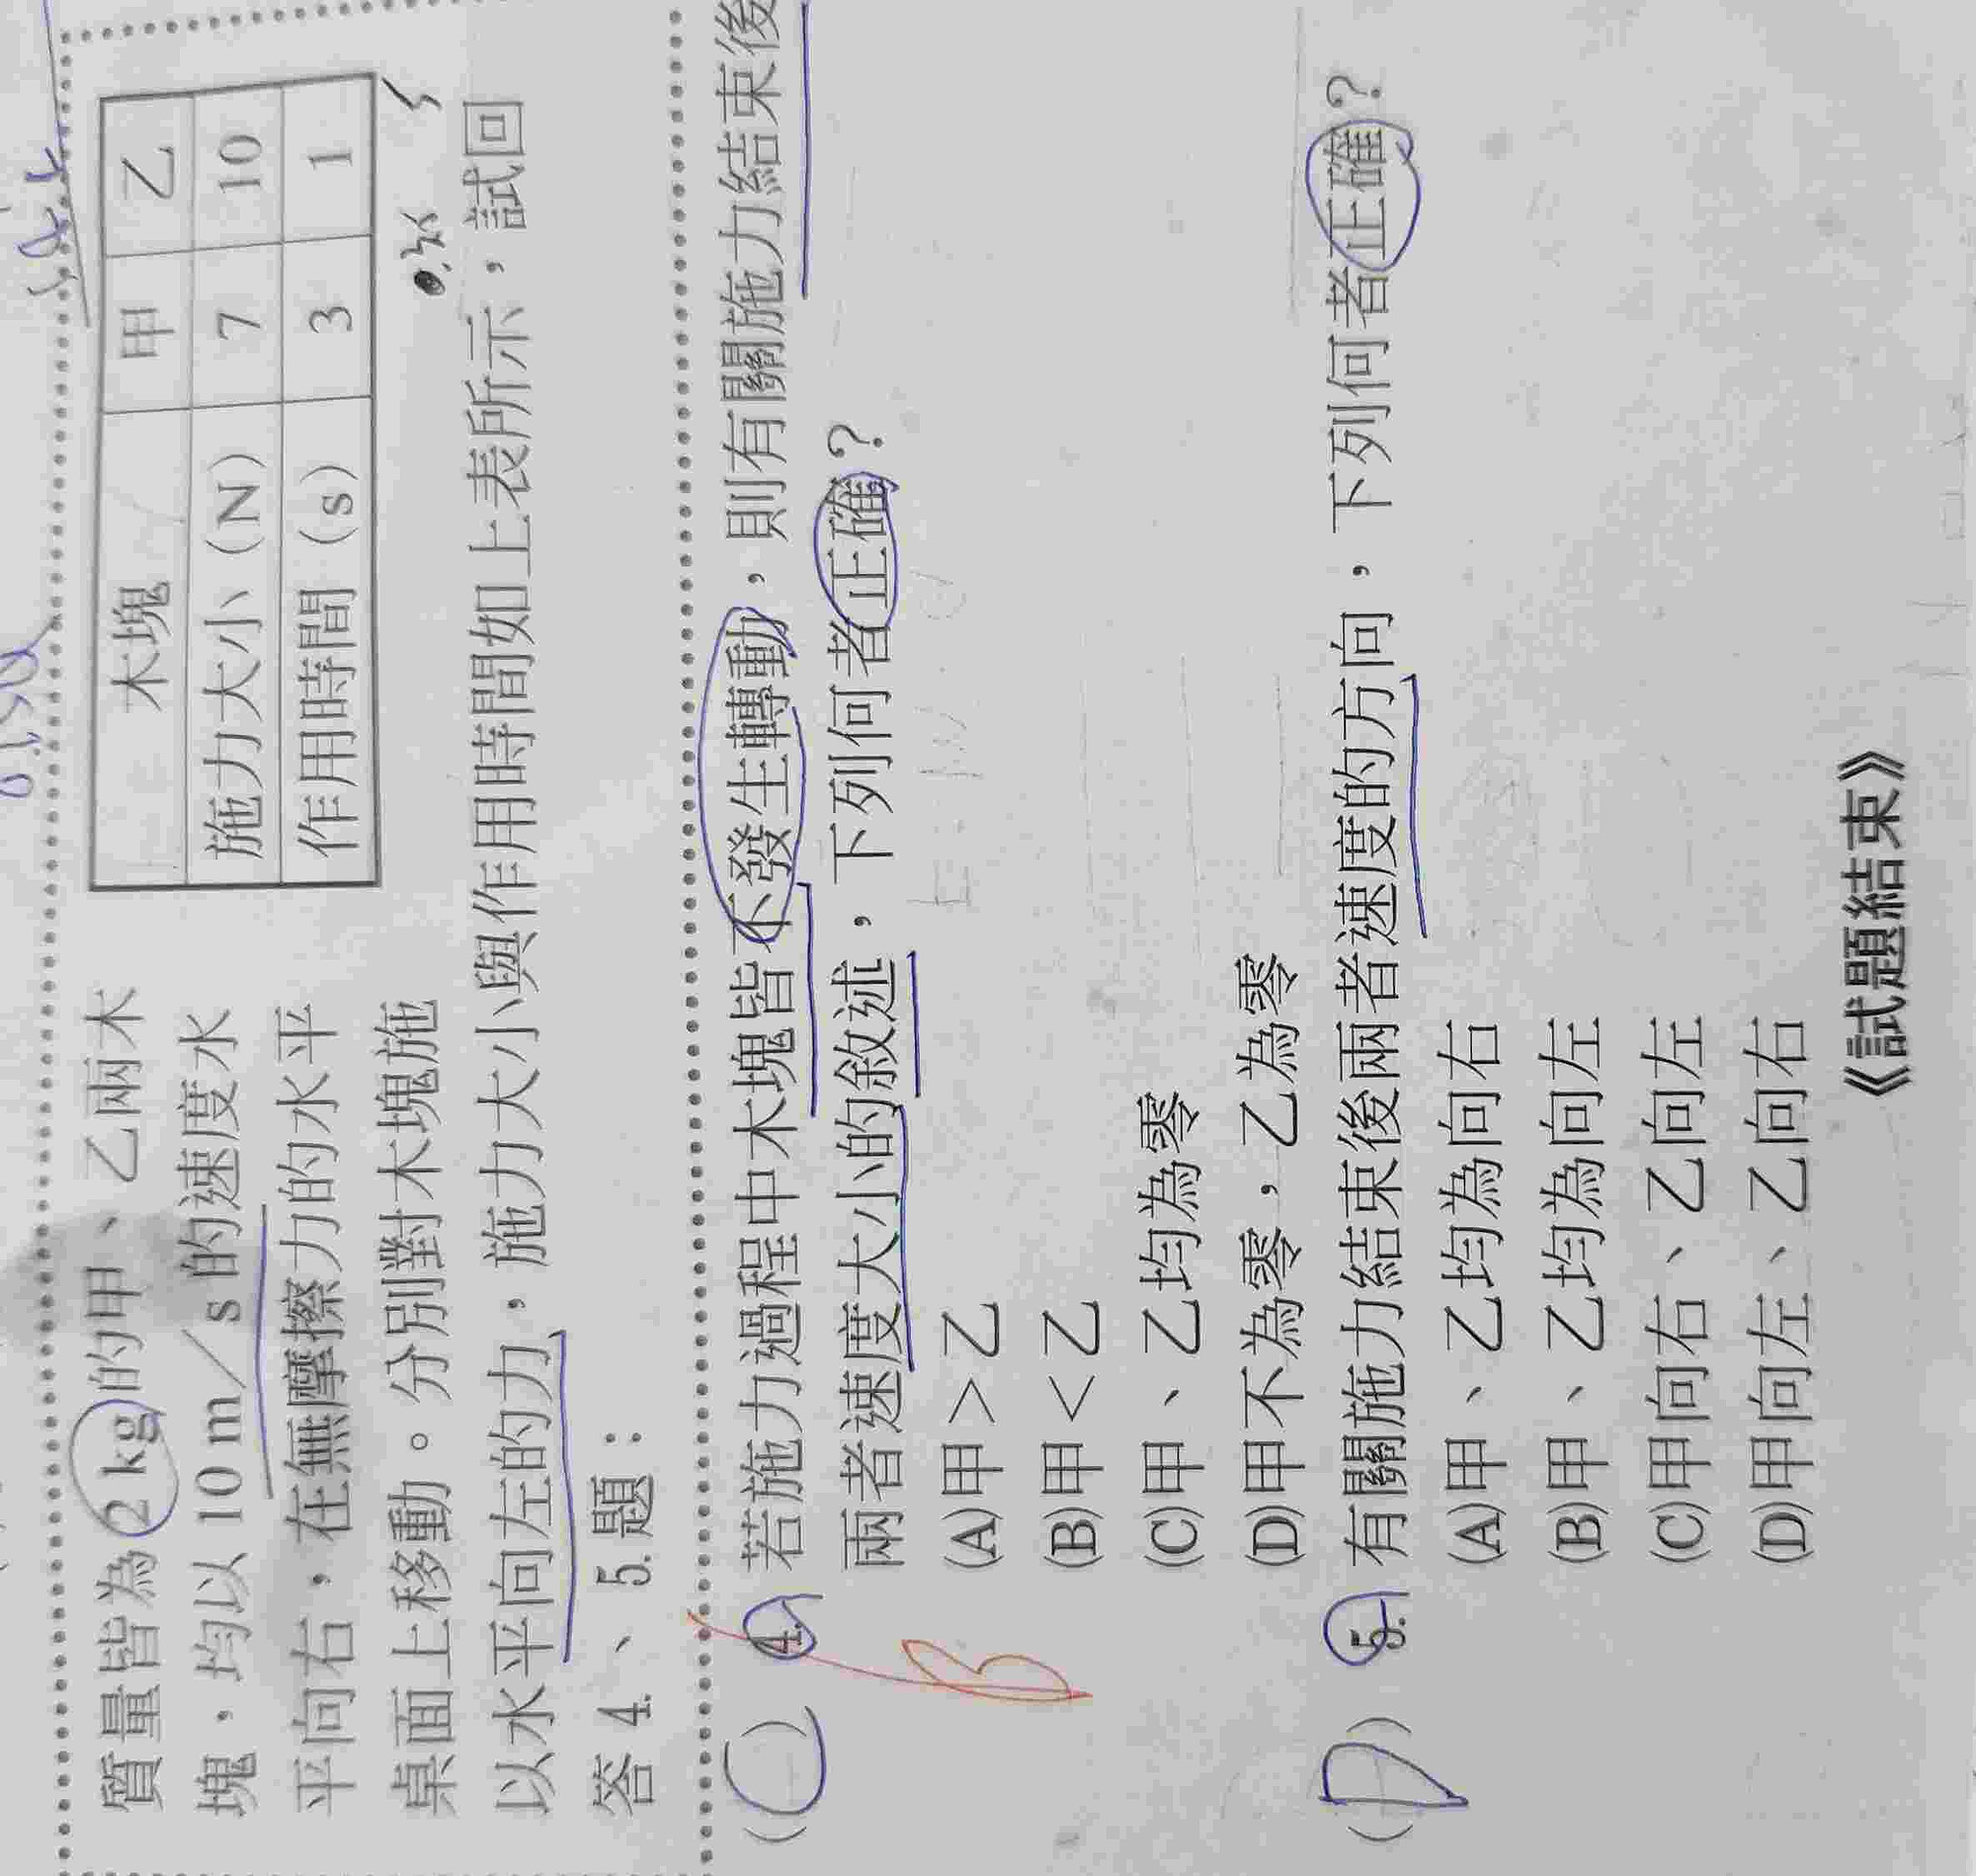 質量皆為 2 kg 的甲、乙兩木
塊，均以 10 m／s 的速度水
平向右，在無摩擦力的水平
桌面上移動。分別對木塊施
以水平向左的力，施力大小與作用時間如上表所示，試回
答 4.、5.題：
木塊 甲 乙
施力大小（N） 7 10
作用時間（s） 3 1
(C) 4. 若施力過程中木塊皆不發生轉動，則有關施力結束後
兩者速度大小的敘述，下列何者正確？
B
(A)甲＞乙
(B)甲＜乙
(C)甲、乙均為零
(D)甲不為零，乙為零
(D) 5. 有關施力結束後兩者速度的方向，下列何者正確？
(A)甲、乙均為向右
(B)甲、乙均為向左
(C)甲向右、乙向左
(D)甲向左、乙向右
《試題結束》